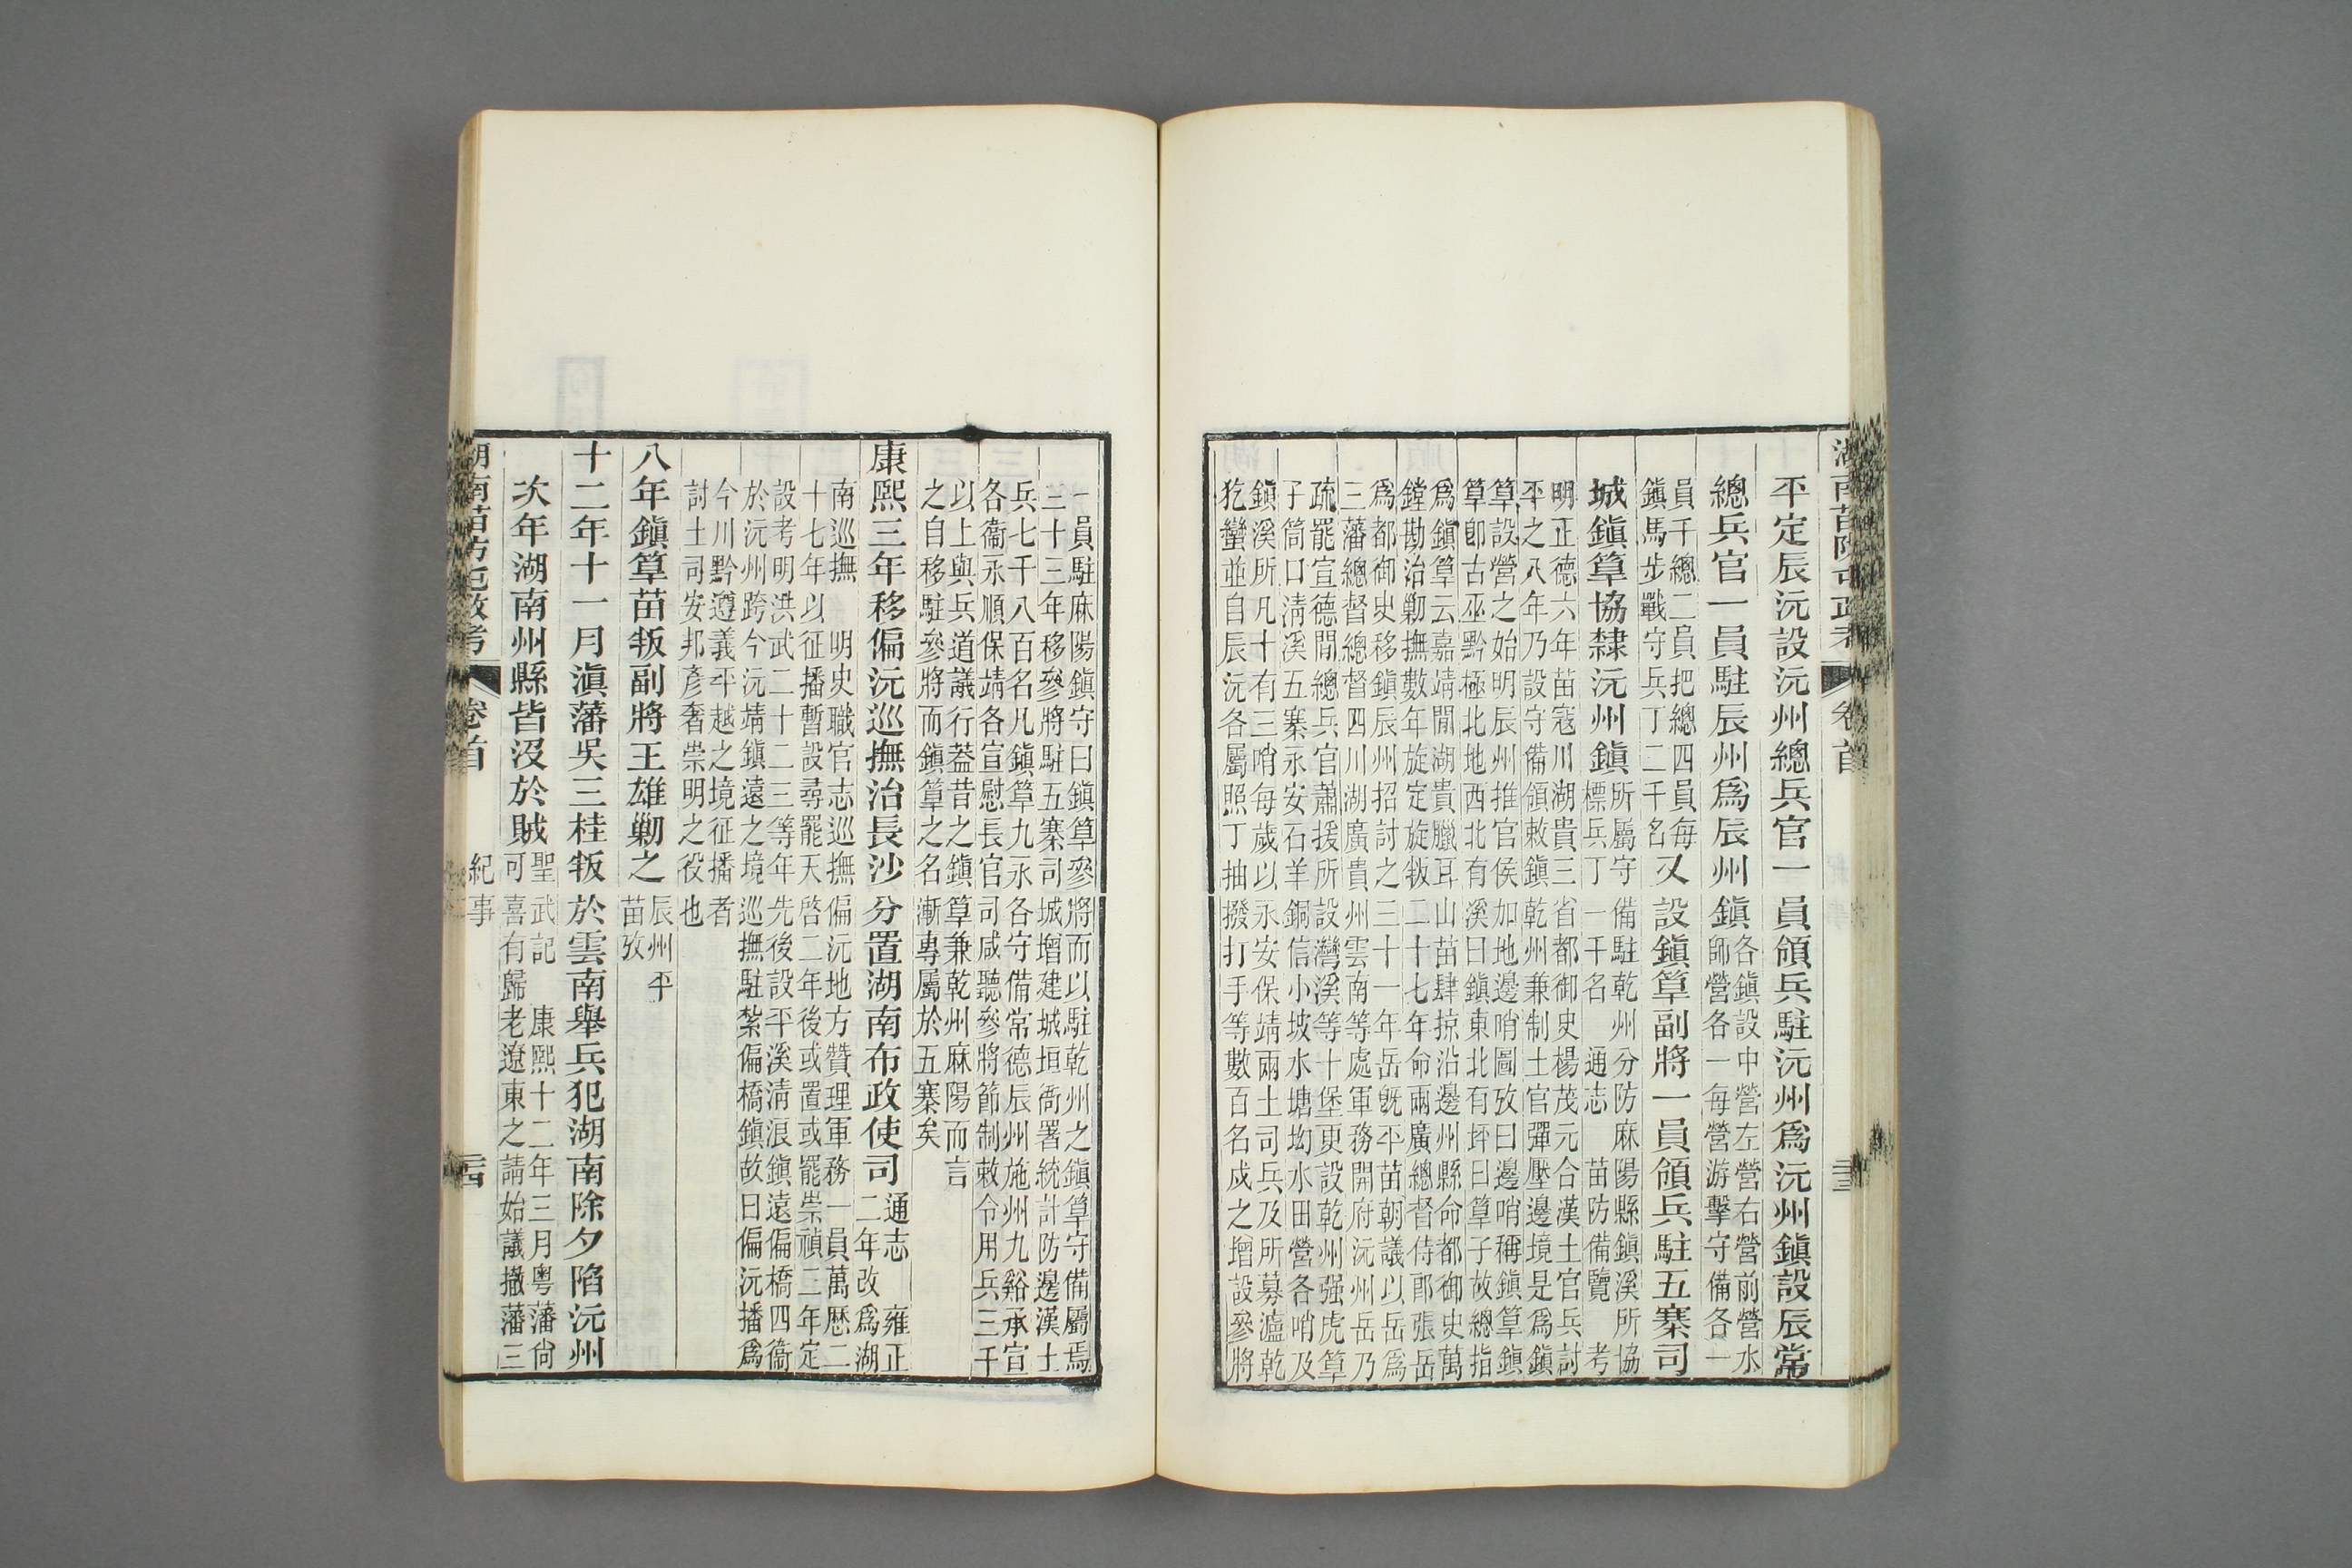 平定辰沅設沅州總兵官一員領兵駐沅州爲沅州鎭設辰常
總兵官一員駐辰州爲辰州鎭各鎭設中營左營右營前營水
師營各一每營游擊守備各一
員千總二員把總四員每
鎭馬步戰守兵丁二千名又設鎭筸副將一員領兵駐五寨司
城鎭筸協隸沅州鎭所屬守備駐乾州分防麻陽縣鎭溪所協
標兵丁一千名 通志 苗防備覽 考
明正德六年苗寇川湖貴三省都御史楊茂元合漢土官兵討
平之八年乃設守備領敕鎭乾州兼制土官彈壓邊境是爲鎭
筸設營之始明辰州推官侯加地邊哨圖攷曰邊哨稱鎭筸鎭
筸卽古巫黔極北地西北有溪曰鎭東北有坪曰筸子故總指
爲鎭筸云嘉靖間湖貴臘耳山苗肆掠沿邊州縣命都御史萬
鏜勘治勦撫數年旋定旋叛二十七年命兩廣總督侍郎張岳
爲都御史移鎭辰州招討之三十一年岳旣平苗朝議以岳爲
三藩總督總督四川湖廣貴州雲南等處軍務開府沅州岳乃
疏罷宣德間總兵官蕭援所設灣溪等十堡更設乾州强虎筸
子筒口淸溪五寨永安石羊銅信小坡水塘坳水田營各哨及
鎭溪所凡十有三哨每歲以永安保靖兩土司兵及所募瀘乾
犵蠻並自辰沅各屬照丁抽撥打手等數百名成之增設參將
湖南苗防屯政考 卷首
一員駐麻陽鎭守曰鎭筸參將而以駐乾州之鎭筸守備屬焉
三十三年移參將駐五寨司城增建城垣衙署統計防邊漢土
兵七千八百名凡鎭筸九永各守備常德辰州施州九谿承宣
各衞永順保靖各宣慰長官司咸聽參將節制敕令用兵三千
以上與兵道議行葢昔之鎭筸兼乾州麻陽而言
之自移駐參將而鎭筸之名漸專屬於五寨矣
康熙三年移偏沅巡撫治長沙分置湖南布政使司通志 雍正
二年改爲湖
南巡撫 明史職官志巡撫偏沅地方贊理軍務一員萬厯二
十七年以征播暫設尋罷天啓二年後或置或罷崇禎二年定
設考明洪武二十二三等年先後設平溪淸浪鎭遠偏橋四衞
於沅州跨今沅靖鎭遠之境巡撫駐紮偏橋鎭故曰偏沅播爲
今川黔遵義平越之境征播者
討土司安邦彥奢崇明之役也
八年鎭筸苗叛副將王雄勦之辰州平
苗攷
十二年十一月滇藩吳三桂叛於雲南舉兵犯湖南除夕陷沅州
次年湖南州縣皆沒於賊聖武記 康熙十二年三月粵藩尙
可喜有歸老遼東之請始議撤藩三
湖南苗防屯政考 卷首 紀事